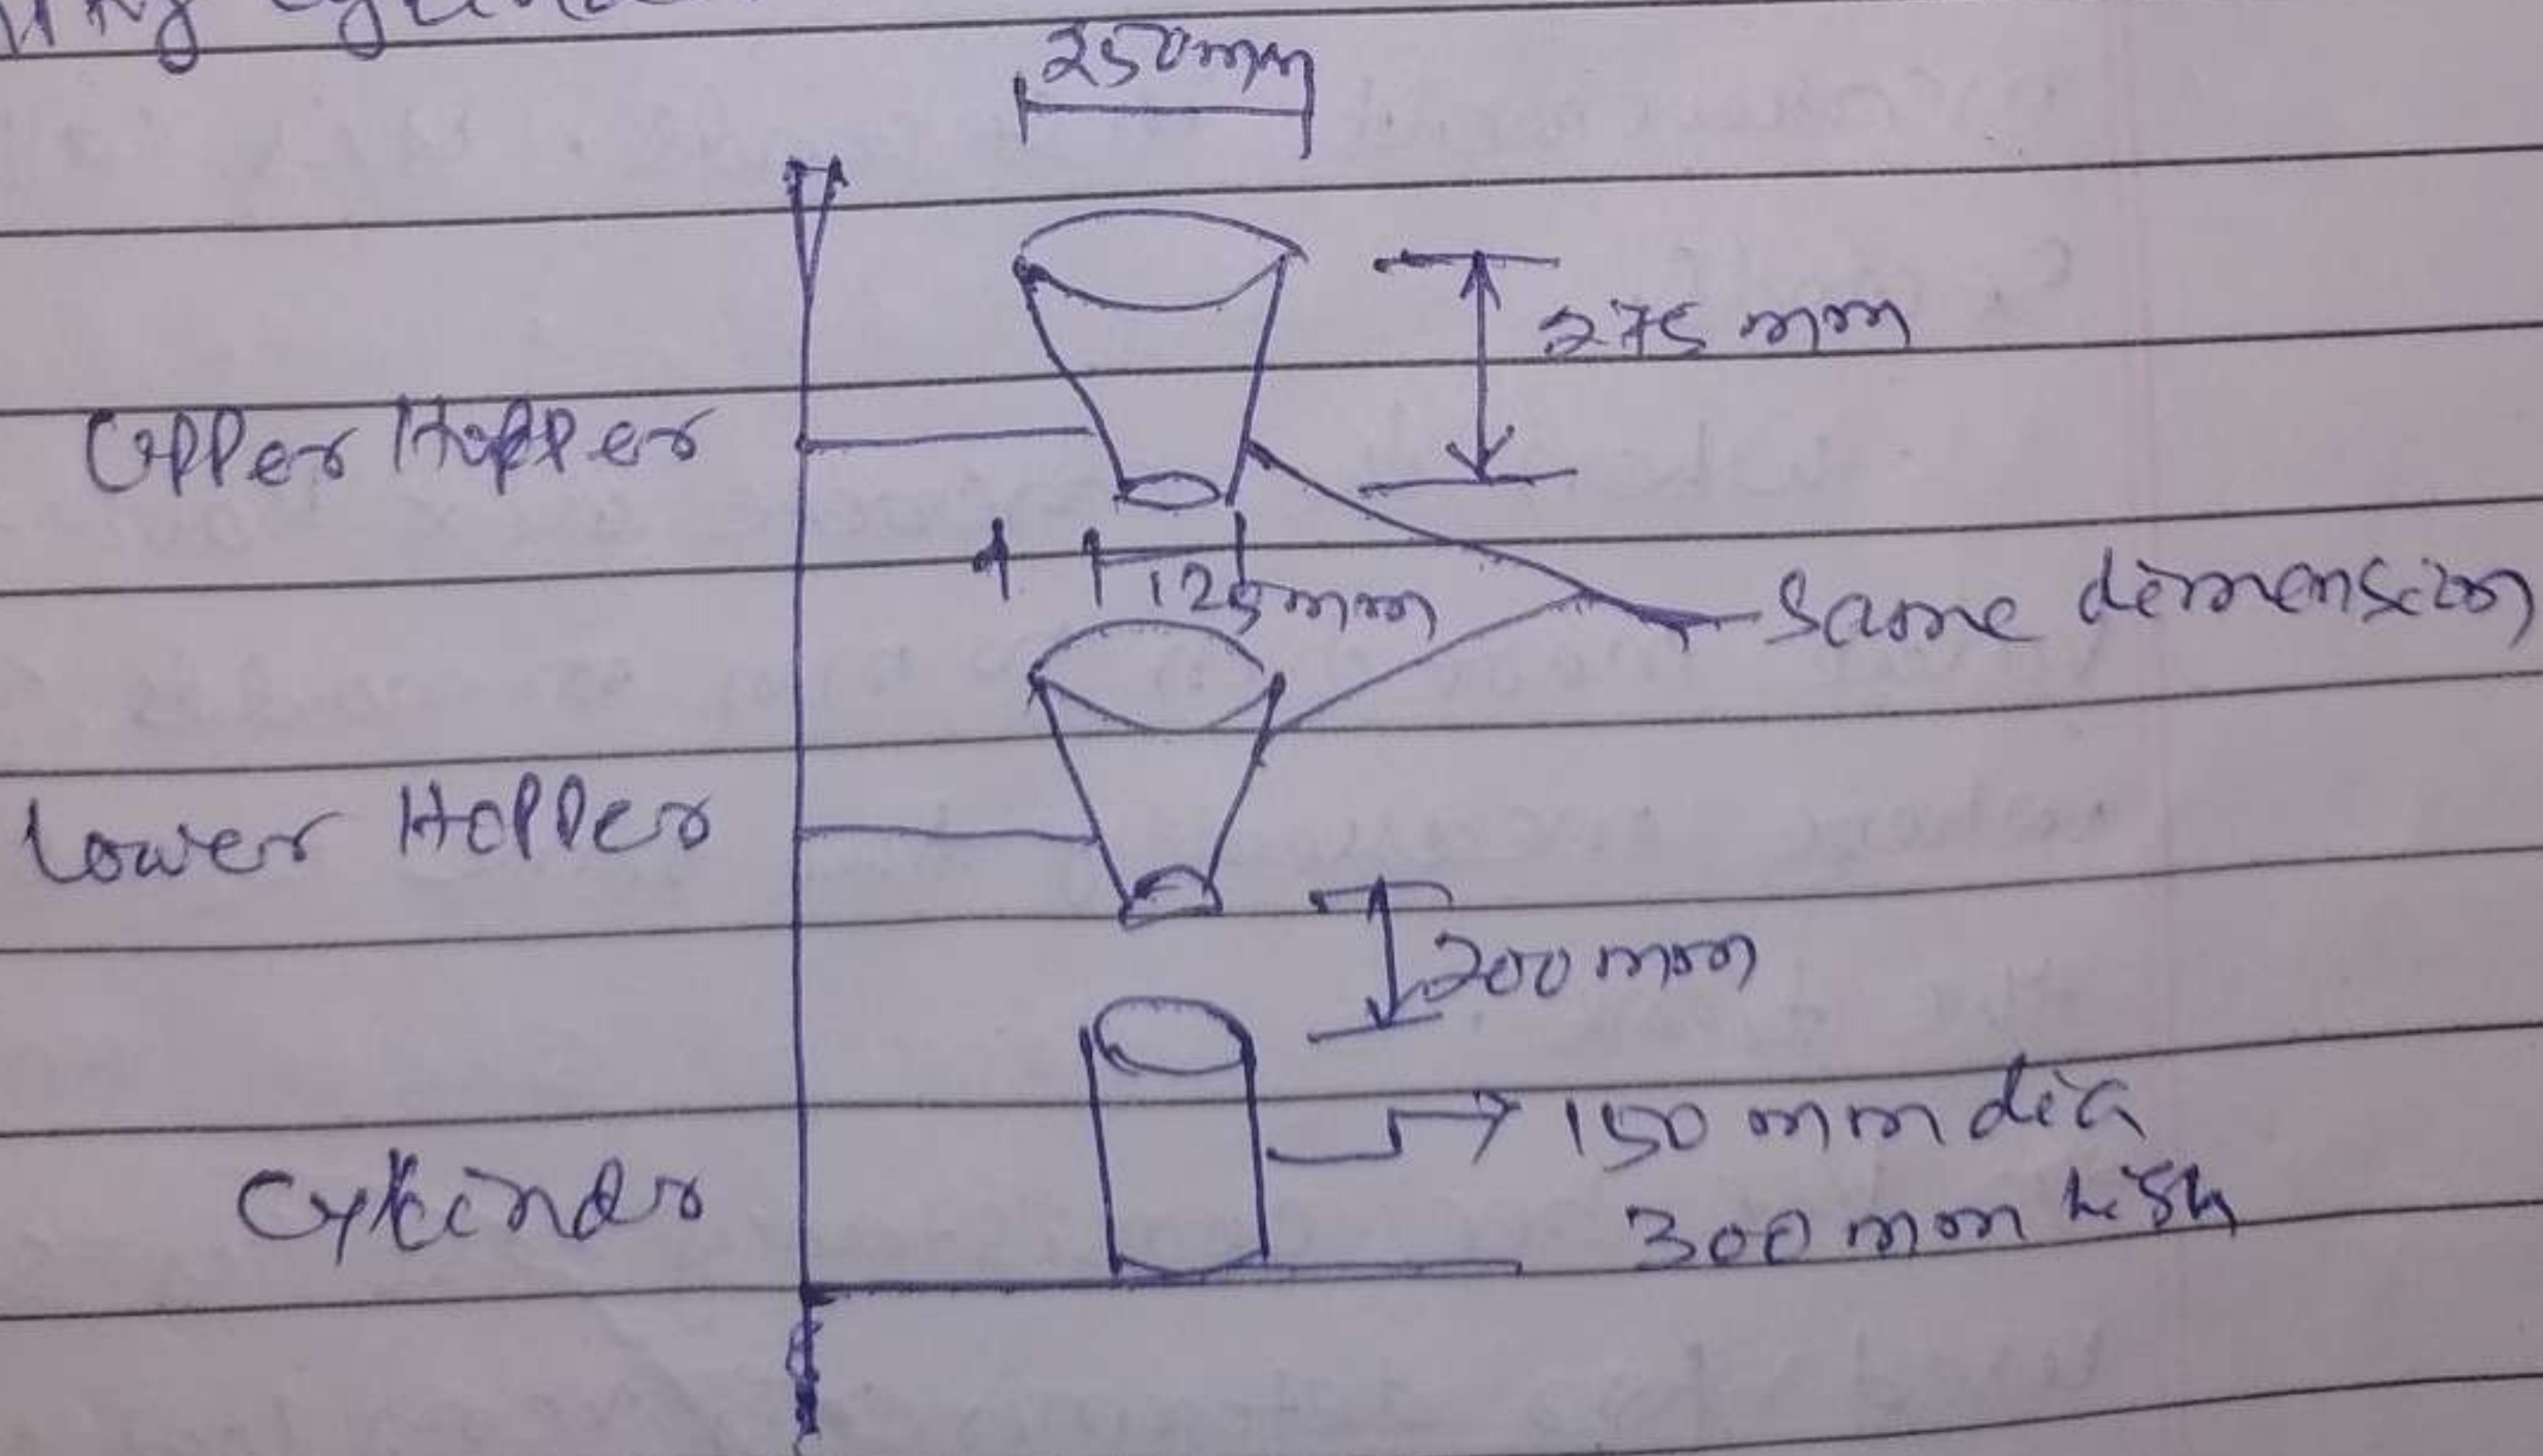 250mm
275 mm
Upper Hopper
125mm
Same dimension
Lower Hopper
200mm
150 mm dia
Cylinder
300 mm high